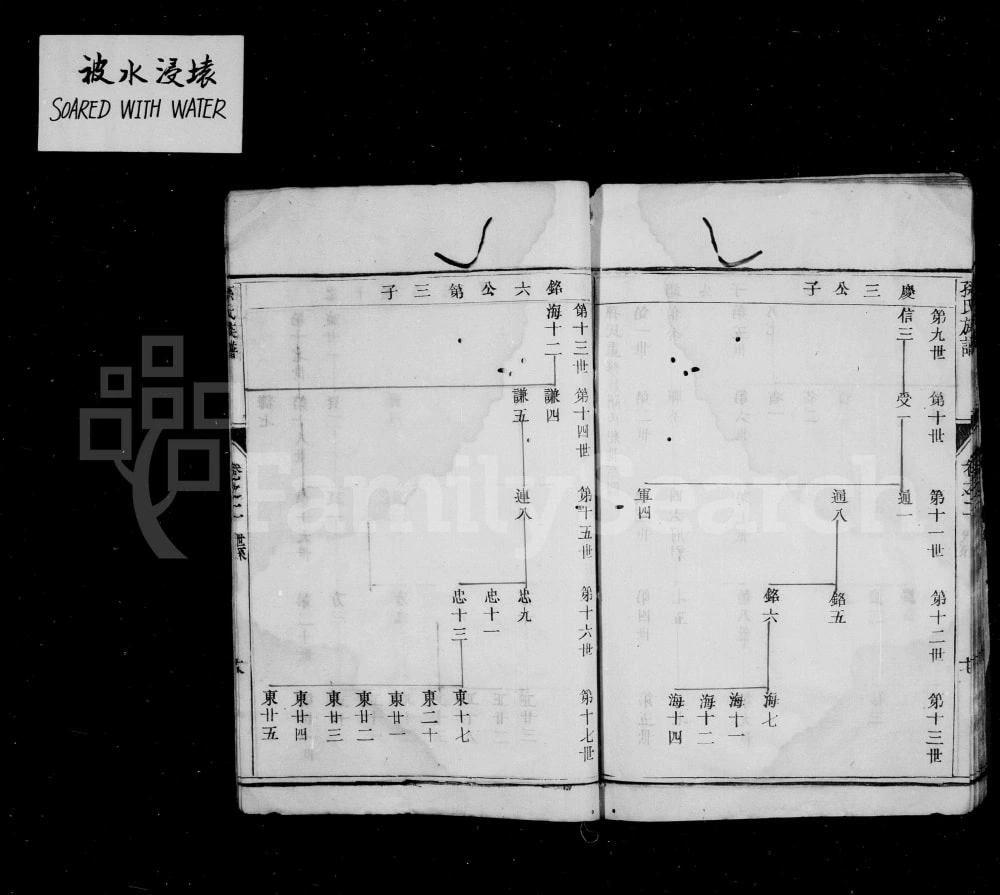 被水浸壊
SOARED WITH WATER
FamilySearch
孫氏族譜
慶三公子
第九世
信三
第十世
受一
第十一世
通一
通八
軍四
第十二世
銘五
銘六
第十三世
海七
海十一
海十二
海十四
銘六公第三子
第十三世
海十二
第十四世
謙四
謙五
第十五世
連八
第十六世
忠九
忠十一
忠十三
第十七世
東十七
東二十
東廿一
東廿二
東廿三
東廿四
東廿五
孫氏族譜
卷之二
世系